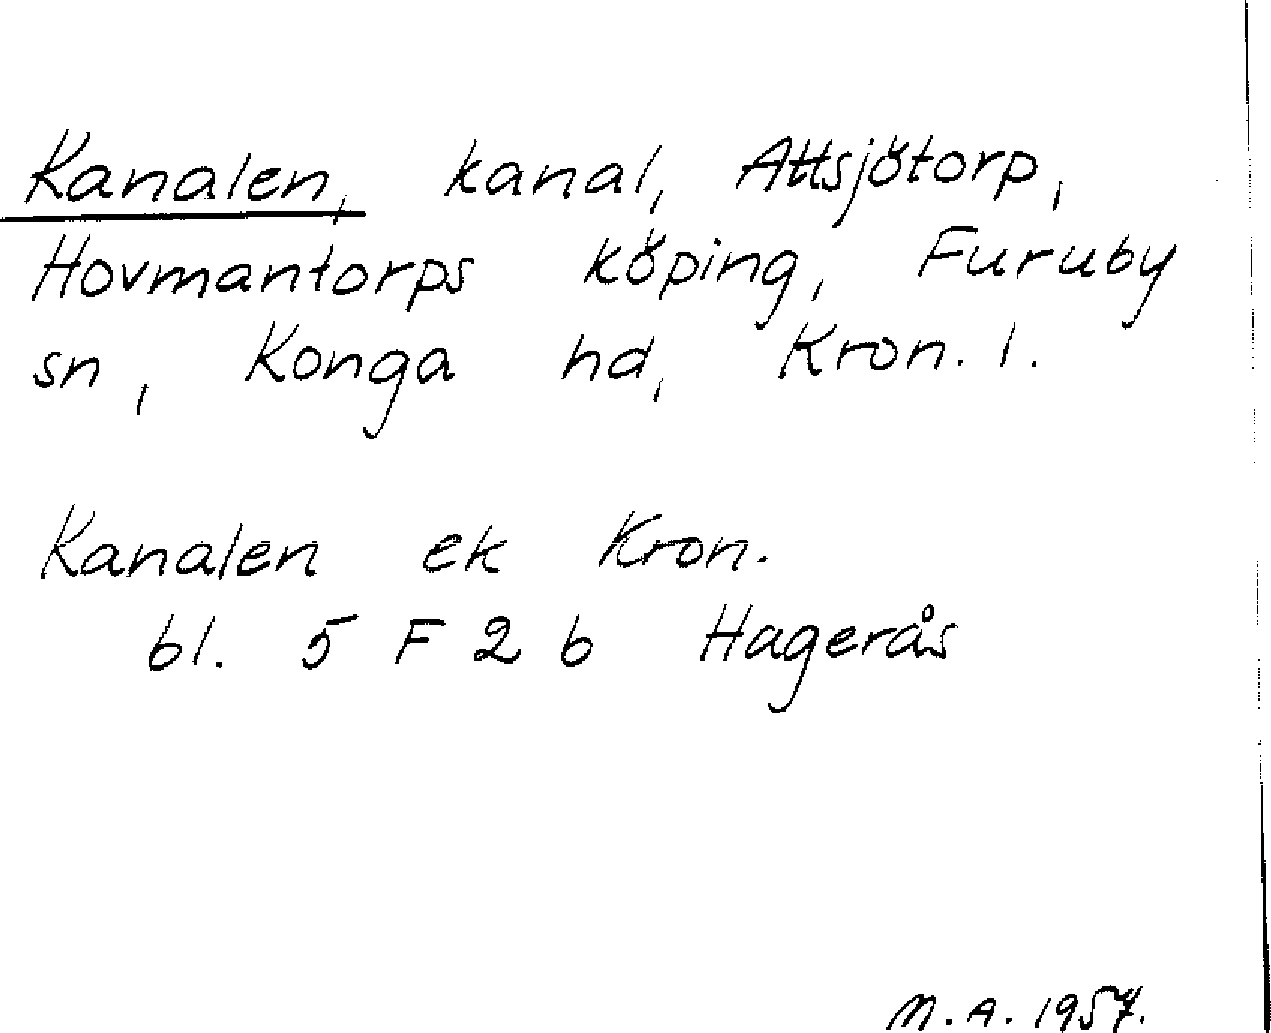 Kanalen, kanal, Attsjötorp,
Hovmantorps köping, Furuby
sn, Konga hd, Kron. l.
Kanalen ek Kron.
bl. 5 F 2 b Hagerås
M.A. 1957.